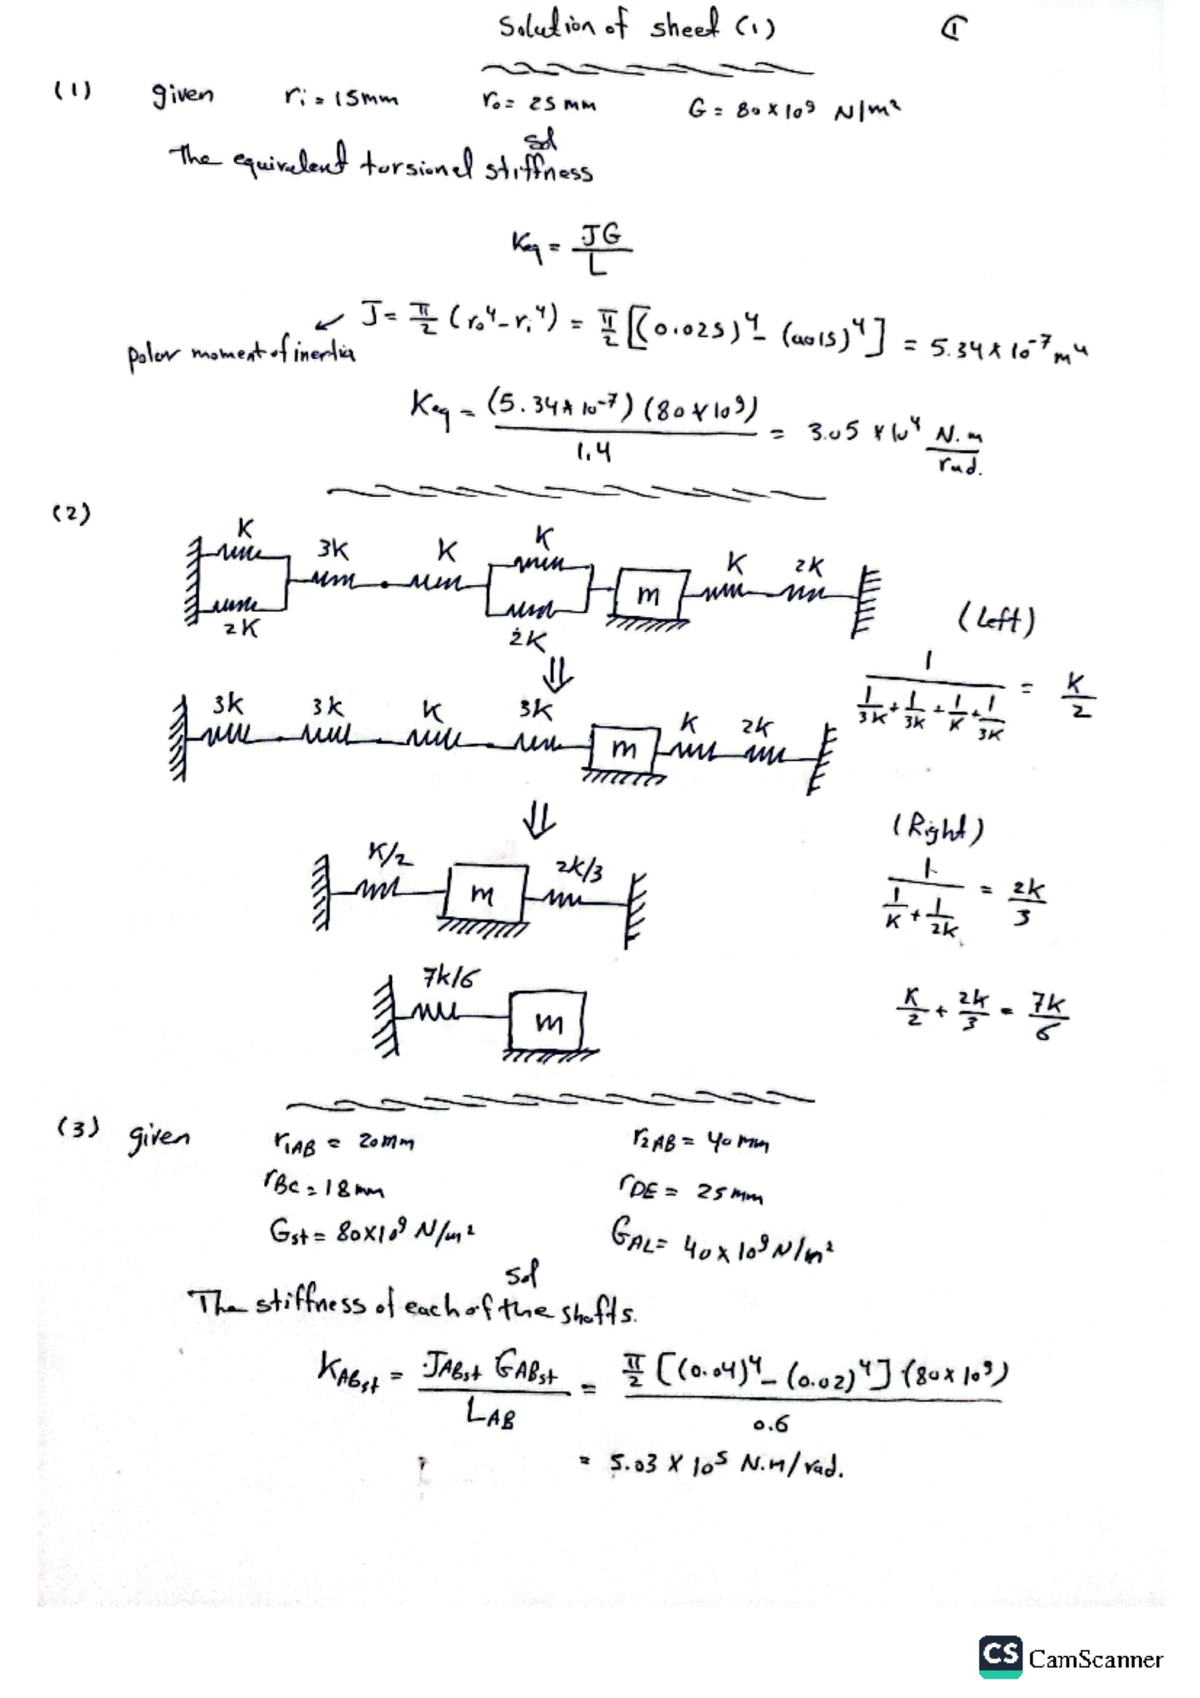 Solution of sheet (1)
(1) given ri = 15mm ro = 25 mm G = 80 x 10⁹ N/m²
sol
The equivalent torsional stiffness
Keq = JG / L
J = π/2 (ro⁴ - ri⁴) = π/2 [(0.025)⁴ - (0.015)⁴] = 5.34 x 10⁻⁷ m⁴
polar moment of inertia
Keq = (5.34 x 10⁻⁷) (80 x 10⁹) / 1.4 = 3.05 x 10⁴ N.m / rad.
(2)
K 3K K K K 2K
m
2K 2K
(Left)
1 / (1/3K + 1/3K + 1/K + 1/3K) = K/2
3K 3K K 3K K 2K
m
(Right)
K/2 2K/3
m
1 / (1/K + 1/2K) = 2K/3
7K/6
m
K/2 + 2K/3 = 7K/6
(3) given r1AB = 20mm r2AB = 40 mm
rBC = 18 mm rDE = 25 mm
Gst = 80x10⁹ N/m² GAL = 40 x 10⁹ N/m²
sol
The stiffness of each of the shafts.
KABst = JABst GABst / LAB = π/2 [(0.04)⁴ - (0.02)⁴] (80 x 10⁹) / 0.6
= 5.03 x 10⁵ N.m/rad.
CS CamScanner